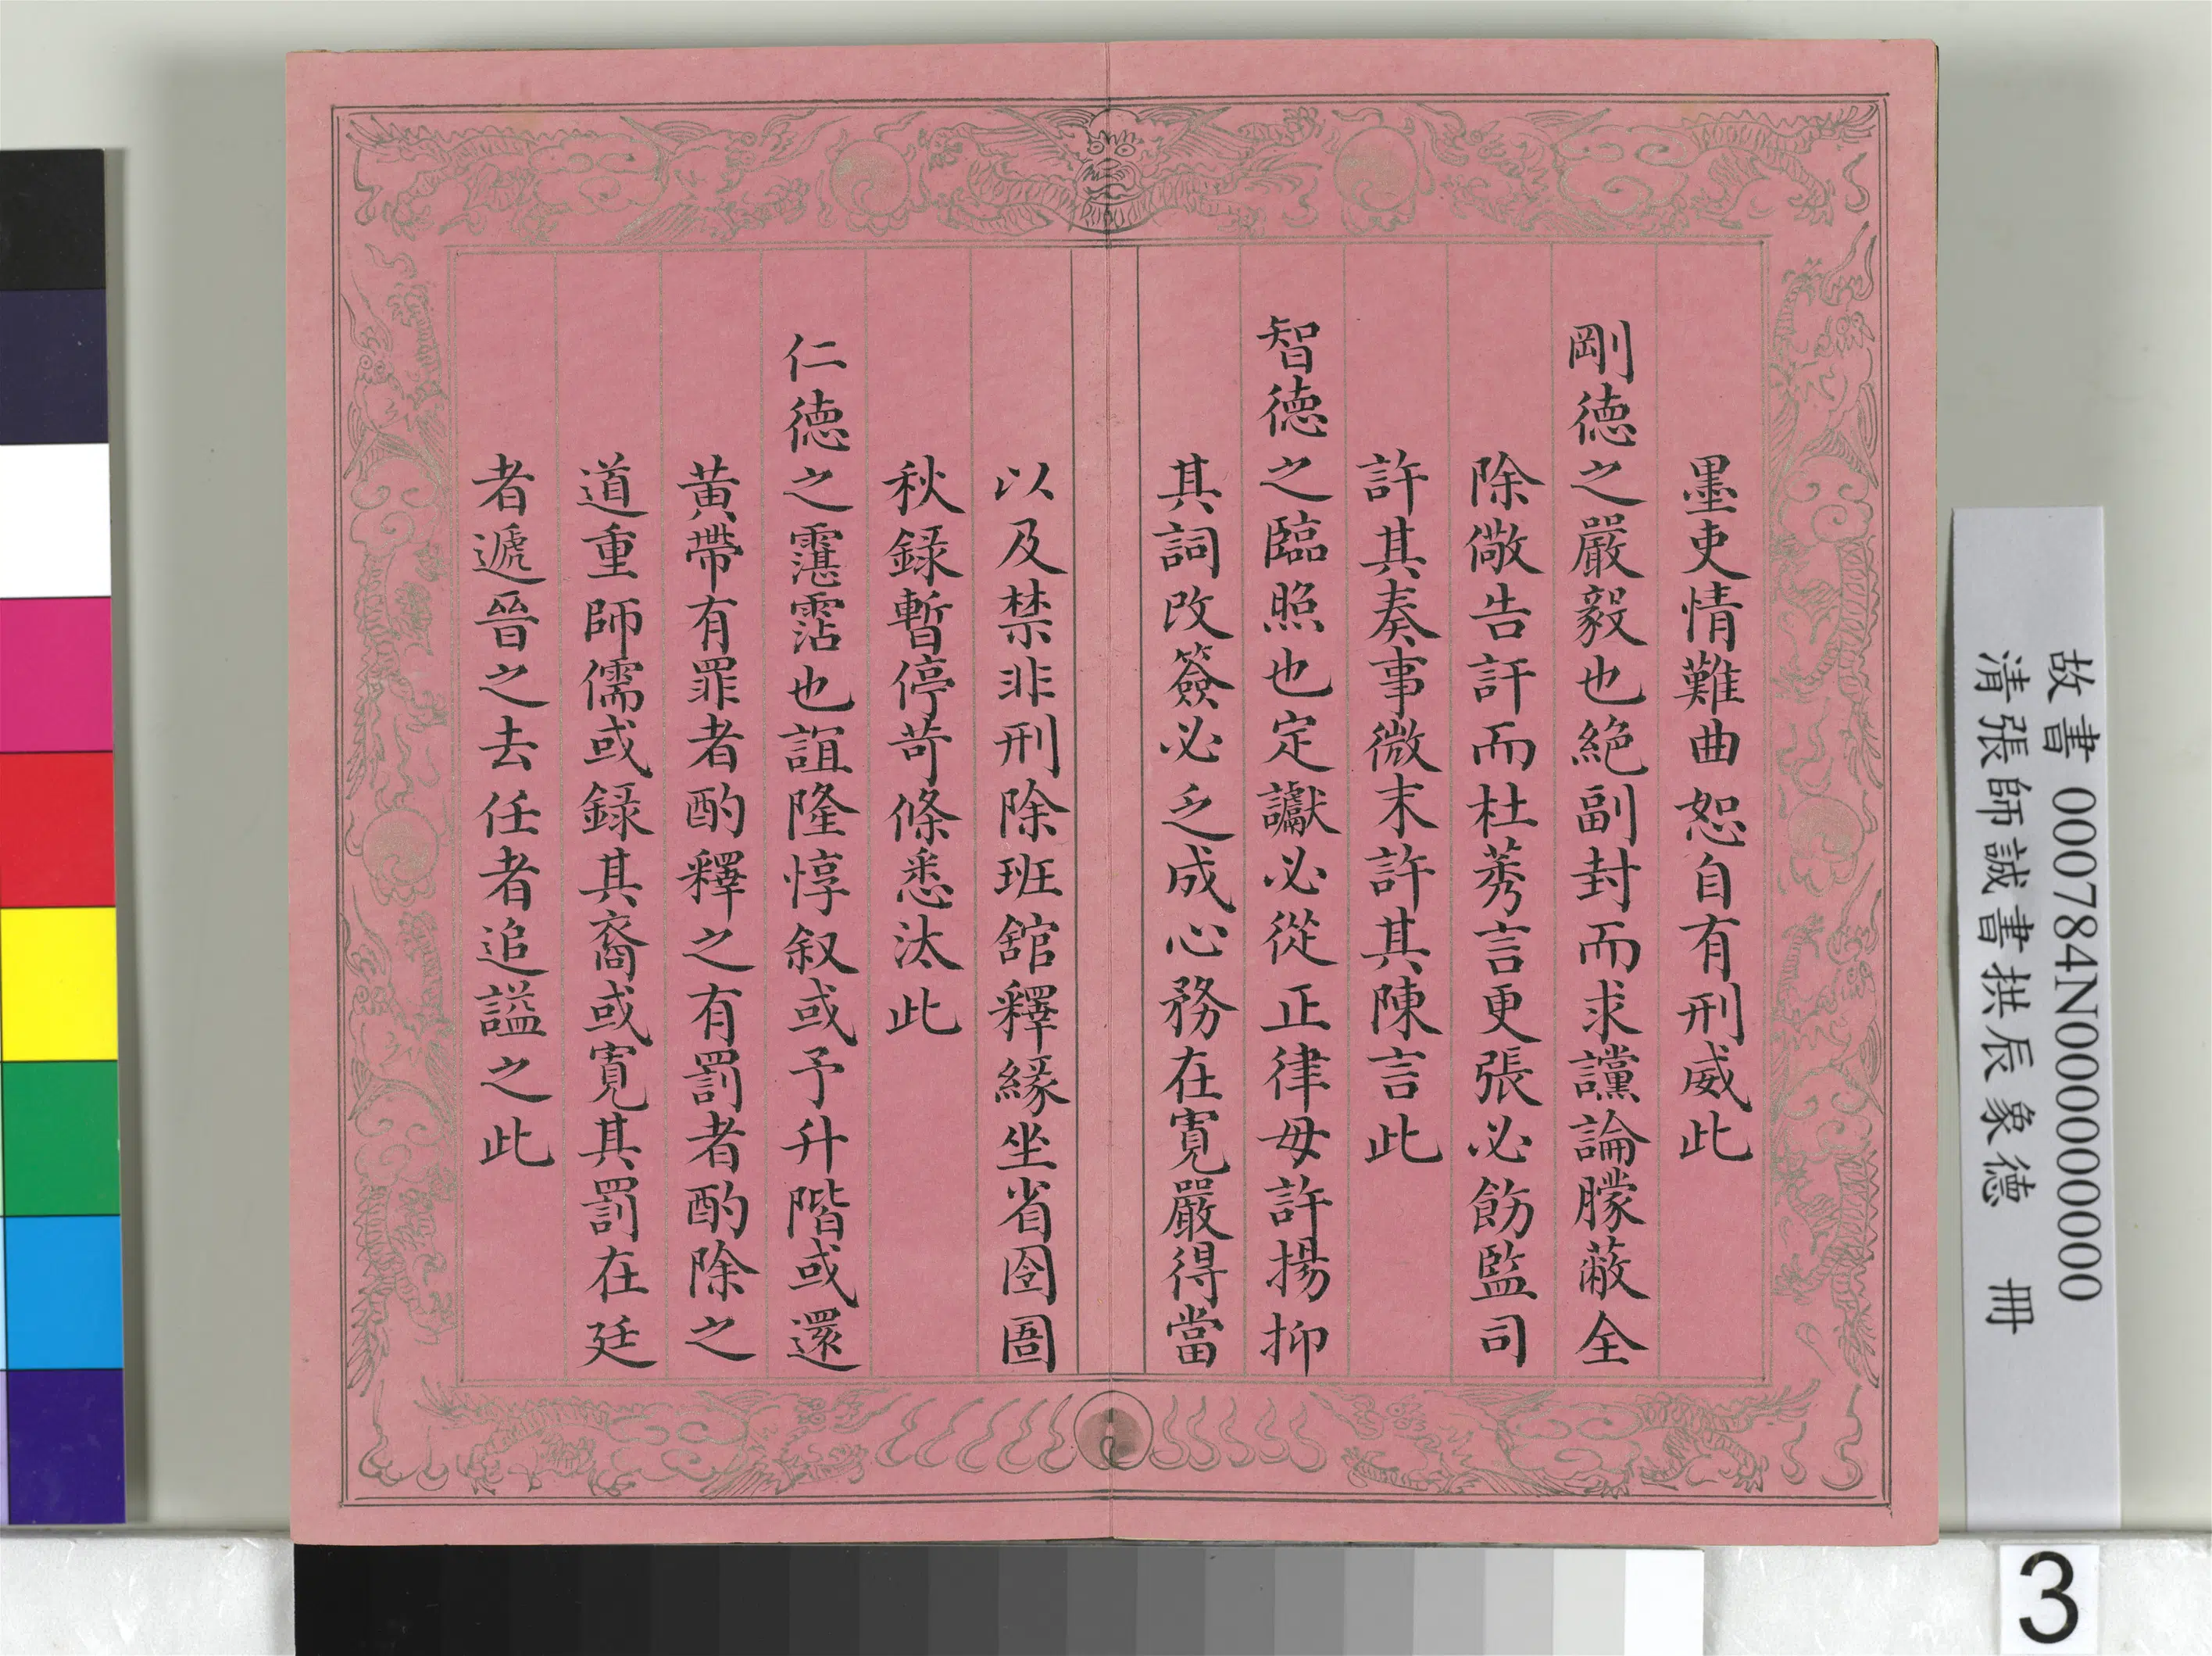 墨吏情難曲恕自有刑威此
剛德之嚴毅也絕副封而求讜論朦蔽全
除儆告訐而杜莠言更張必飭監司
許其奏事微末許其陳言此
智德之臨照也定讞必從正律毋許揚抑
其詞改簽必乏成心務在寬嚴得當
以及禁非刑除班舘釋緣坐省囹圄
秋録暫停苛條悉汰此
仁德之霮霑也誼隆惇叙或予升階或還
黃帶有罪者酌釋之有罰者酌除之
道重師儒或録其裔或寬其罰在廷
者遞晉之去任者追謚之此
故書 000784N000000000
清張師誠書拱辰象德 冊
3